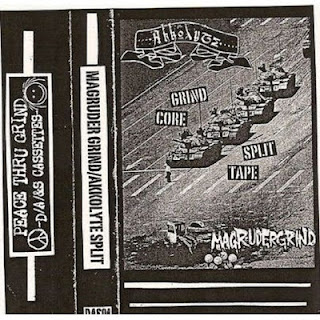 PEACE THRU GRIND
D/A/&S CASSETTES
MAGRUDER GRIND/AKKOLYTE SPLIT
Akkolyte
GRIND
CORE
SPLIT
TAPE
MAGRUDERGRIND